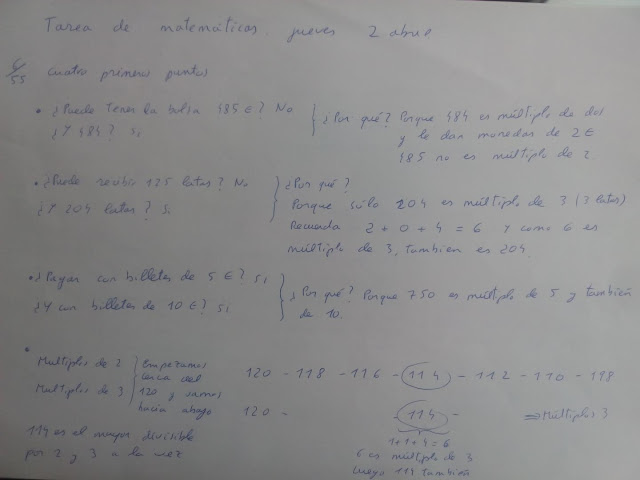 Tarea de matemáticas. jueves 2 abril
6/55 cuatro primeros puntos
• ¿Puede tener la bolsa 485 €? No
¿Y 484? Si
¿Por qué? Porque 484 es múltiplo de dos
y le dan monedas de 2 €
485 no es múltiplo de 2.
• ¿Puede recibir 125 latas? No
¿Y 204 latas? Si
¿Por qué?
Porque sólo 204 es múltiplo de 3 (3 latas)
Recuerda 2 + 0 + 4 = 6 y como 6 es
múltiplo de 3, tambien es 204.
• ¿Pagar con billetes de 5 €? Si
¿Y con billetes de 10 €? Si
¿Por qué? Porque 750 es múltiplo de 5 y también
de 10.
•
Multiplos de 2
Multiplos de 3
Empezamos
cerca del
120 y vamos
hacia abajo
120 - 118 - 116 - 114 - 112 - 110 - 198
120 - - 114 - ⇒ Múltiplos 3
1+1+4 = 6
6 es múltiplo de 3
luego 114 también
114 es el mayor divisible
por 2 y 3 a la vez